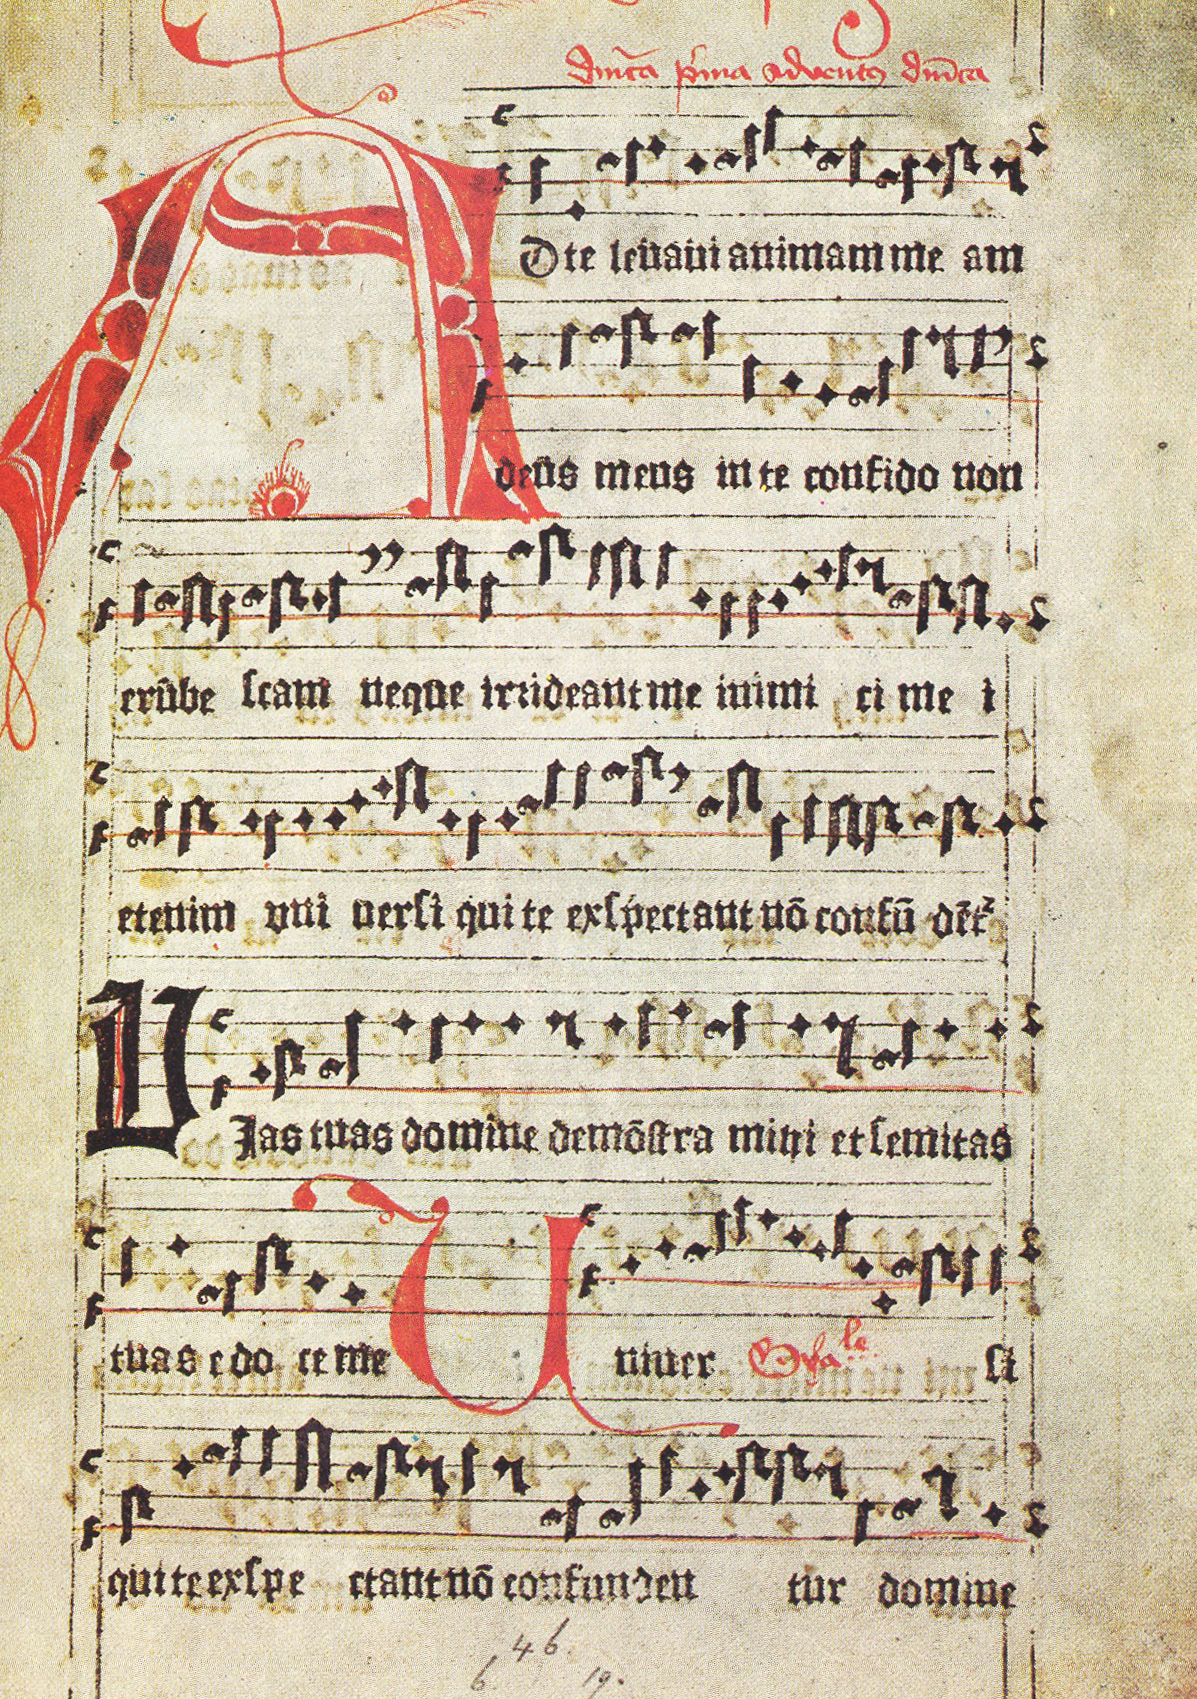 dm̄ca p'ma adventus dm̄ca
AD te leuaui animam me am
deus meus in te confido non
erube scam neque irrideant me inimi ci me i
etenim uni uersi qui te exspectant nō confū dēt᷑
Vias tuas domine demōstra mihi et semitas
tuas e do ce me Uniuer Gͬale si
qui te exspe ctant nō confunden tur domine
4 6.
6 19.